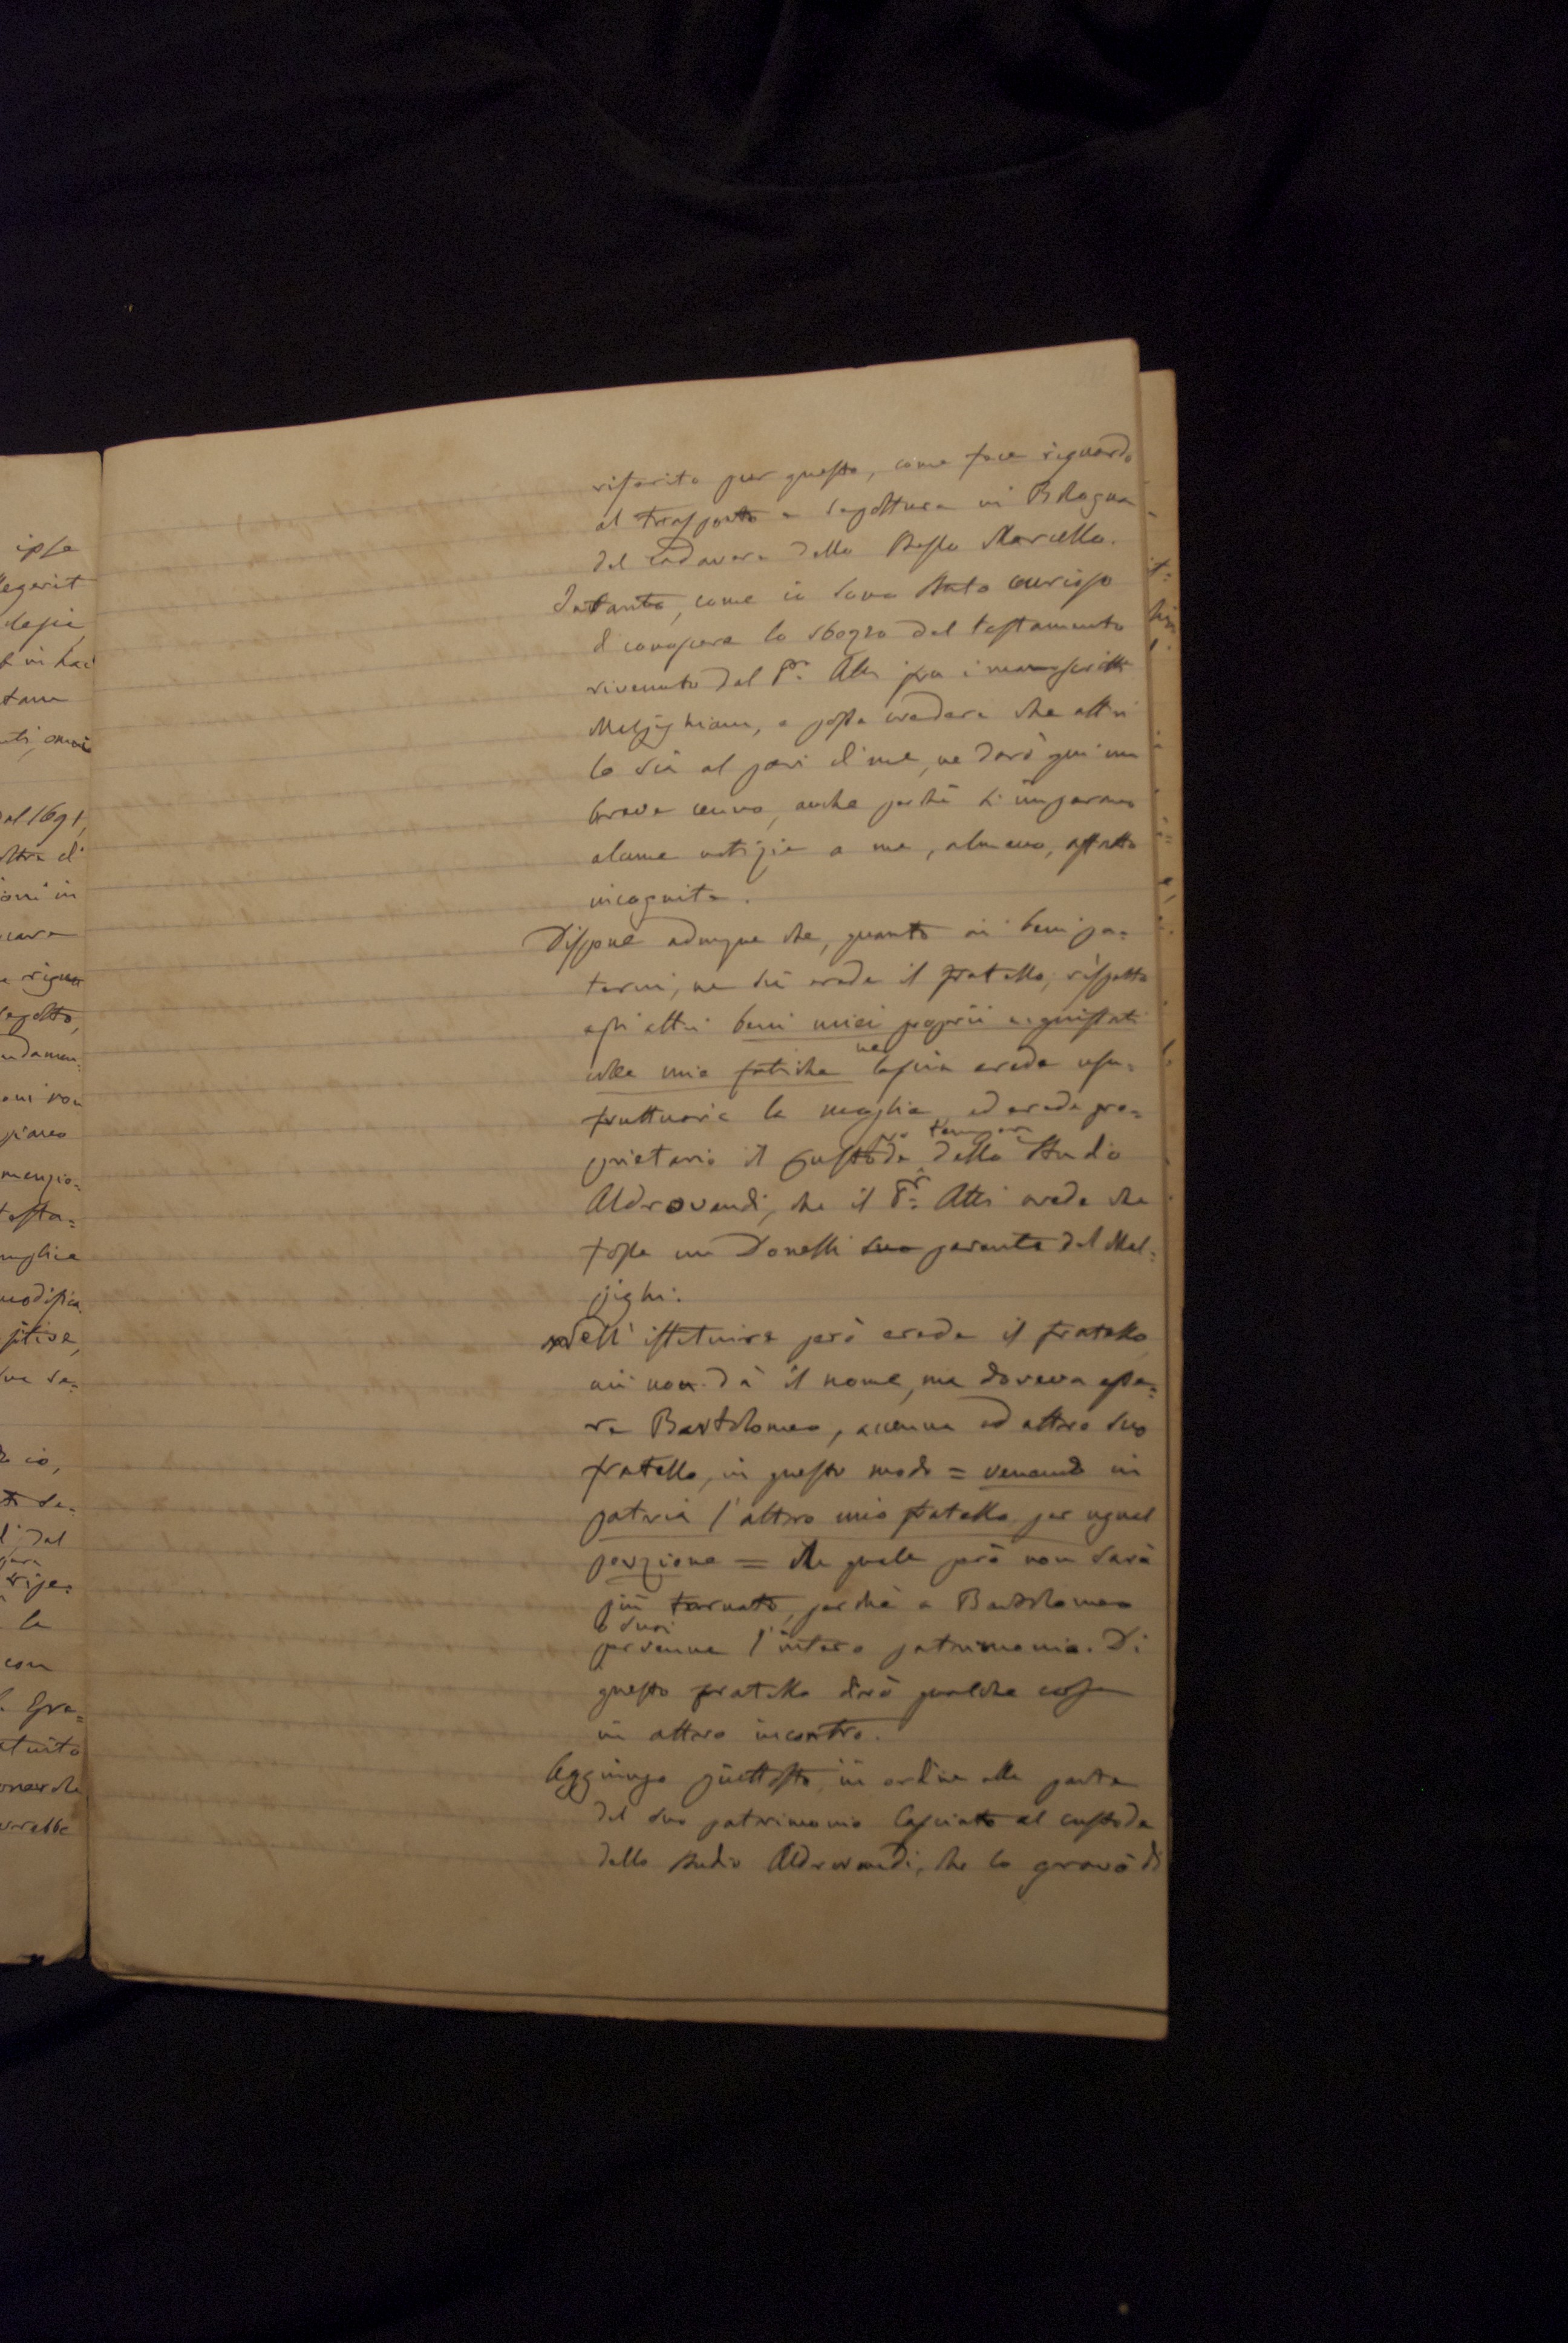 riferito per questo, come fece riguardo
al trasporto e sepoltura in Bologna
del Cadavere dello stesso Marcello.
Intanto, come io sono stato curioso
di conoscere lo sbozzo del testamento
rivenuto dal Pr. Atti fra i manoscritti
Malpighiani, e posso credere che altri
lo sia al pari di me, ne darò qui un
breve cenno, anche perchè s'imparano
alcune notizie a me, almeno, affatto
incognite.
Dispone adunque che, quanto ai beni pa=
terni, ne sia erede il fratello, rispetto
agli altri beni miei proprii acquistati
colle mie fatiche ne lascia erede usu=
fruttuaria la moglie, ed erede pro=
prietario il custode pro tempore dello Studio
Aldrovandi, che il Pr. Atti crede che
fosse un Donelli suo parente del Mal=
pighi.
Nell' istituire però erede il fratello
cui non dà il nome, ma doveva esse=
re Bartolomeo, accenna ad altro suo
fratello, in questo modo = venendo in
patria l'altro mio fratello per egual
porzione = il quale però non sarà
più tornato, perchè a Bartolomeo
o suoi
pervenne l'intero patrimonio. Di
questo fratello dirò qualche cosa
in altro incontro.
Aggiungo piuttosto, in ordine alla parte
del suo patrimonio lasciato al custode
dello studio Aldrovandi, che lo gravò di
ipse
legerit
tam
al 1691,
oltre di
ioni in
sepolto,
menzio=
testa=
moglie
modifica
io,
dal
la
con